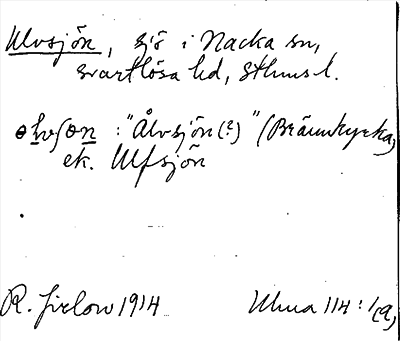 Ulvsjön, sjö i Nacka sn,
Svartlösa hd, Sthms l.
"Älvsjön(?)" (Brännkyrka)
ek. Ulfsjön
R. Jirlow 1914 Ulma 114:1(a)